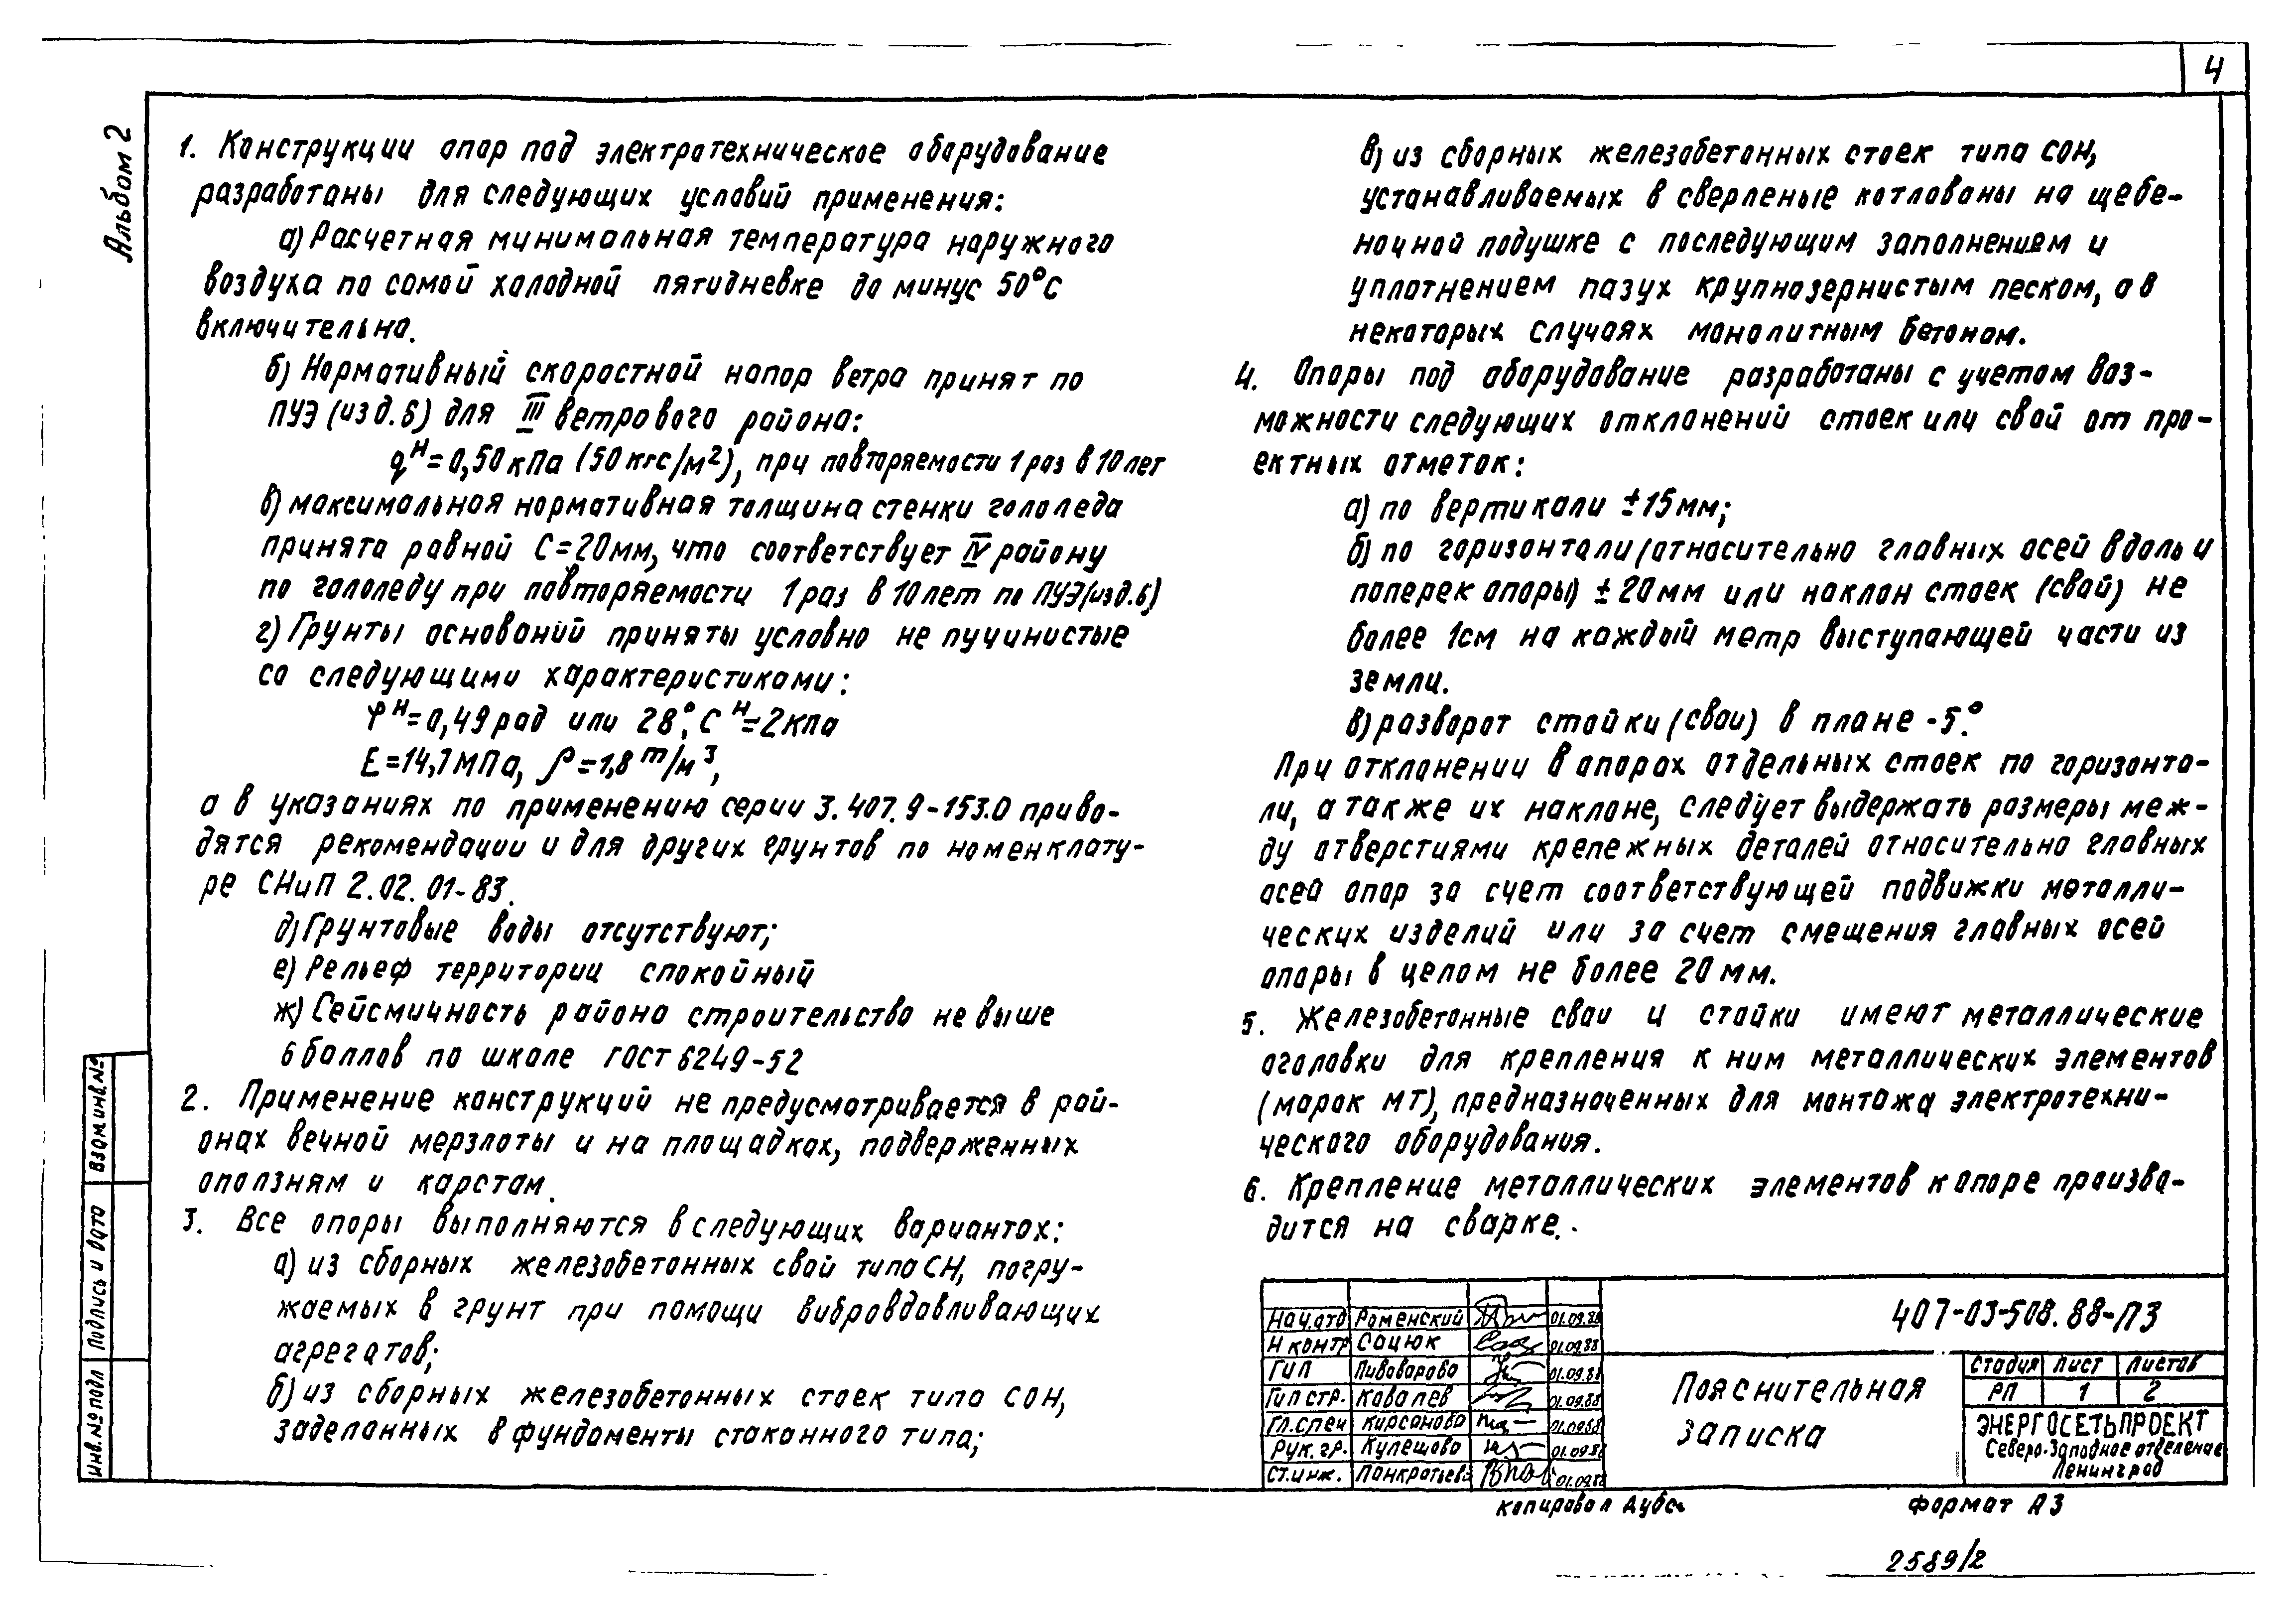 4
Альбом 2
1. Конструкции опор под электротехническое оборудование
разработаны для следующих условий применения:
а) Расчетная минимальная температура наружного
воздуха по самой холодной пятидневке до минус 50°С
включительно.
б) Нормативный скоростной напор ветра принят по
ПУЭ (изд. 6) для III ветрового района:
qᴴ=0,50 кПа (50 кгс/м²), при повторяемости 1 раз в 10 лет
в) максимальная нормативная толщина стенки гололеда
принята равной С=20мм, что соответствует IV району
по гололеду при повторяемости 1 раз в 10 лет по ПУЭ (изд.6)
г) Грунты оснований приняты условно не пучинистые
со следующими характеристиками:
φᴴ=0,49 рад или 28°, Сᴴ=2кПа
Е=14,7 МПа, ρ=1,8 т/м³,
а в указаниях по применению серии 3.407.9-153.0 приво-
дятся рекомендации и для других грунтов по номенклату-
ре СНиП 2.02.01-83.
д) Грунтовые воды отсутствуют;
е) Рельеф территории спокойный
ж) Сейсмичность района строительства не выше
6 баллов по шкале ГОСТ 6249-52
2. Применение конструкций не предусматривается в рай-
онах вечной мерзлоты и на площадках, подверженных
оползням и карстам.
3. Все опоры выполняются в следующих вариантах:
а) из сборных железобетонных свай типа СН, погру-
жаемых в грунт при помощи вибровдавливающих
агрегатов;
б) из сборных железобетонных стоек типа СОН,
заделанных в фундаменты стаканного типа;
в) из сборных железобетонных стоек типа СОН,
устанавливаемых в сверленые котлованы на щебе-
ночной подушке с последующим заполнением и
уплотнением пазух крупнозернистым песком, а в
некоторых случаях монолитным бетоном.
4. Опоры под оборудование разработаны с учетом воз-
можности следующих отклонений стоек или свай от про-
ектных отметок:
а) по вертикали ±15мм;
б) по горизонтали (относительно главных осей вдоль и
поперек опоры) ±20мм или наклон стоек (свай) не
более 1см на каждый метр выступающей части из
земли.
в) разворот стойки (сваи) в плане -5°.
При отклонении в опорах отдельных стоек по горизонта-
ли, а также их наклоне, следует выдержать размеры меж-
ду отверстиями крепежных деталей относительно главных
осей опор за счет соответствующей подвижки металли-
ческих изделий или за счет смещения главных осей
опоры в целом не более 20 мм.
5. Железобетонные сваи и стойки имеют металлические
оголовки для крепления к ним металлических элементов
(марок МТ), предназначенных для монтажа электротехни-
ческого оборудования.
6. Крепление металлических элементов к опоре произво-
дится на сварке.
Взам.инв.№
Подпись и дата
Инв.№подл
Нач.отд Роменский 01.09.88
Н контр Сацюк 01.09.88
ГИП Пивоварова 01.09.88
Гип стр. Ковалев 01.09.88
Гл.спец Кирсанова 01.09.88
Рук.гр. Кулешова 01.09.88
Ст.инж. Панкратьева 01.09.88
407-03-508.88-ПЗ
Пояснительная
записка
Стадия Лист Листов
РП 1 2
ЭНЕРГОСЕТЬПРОЕКТ
Северо-Западное отделение
Ленинград
копировал
Формат А3
2589/2